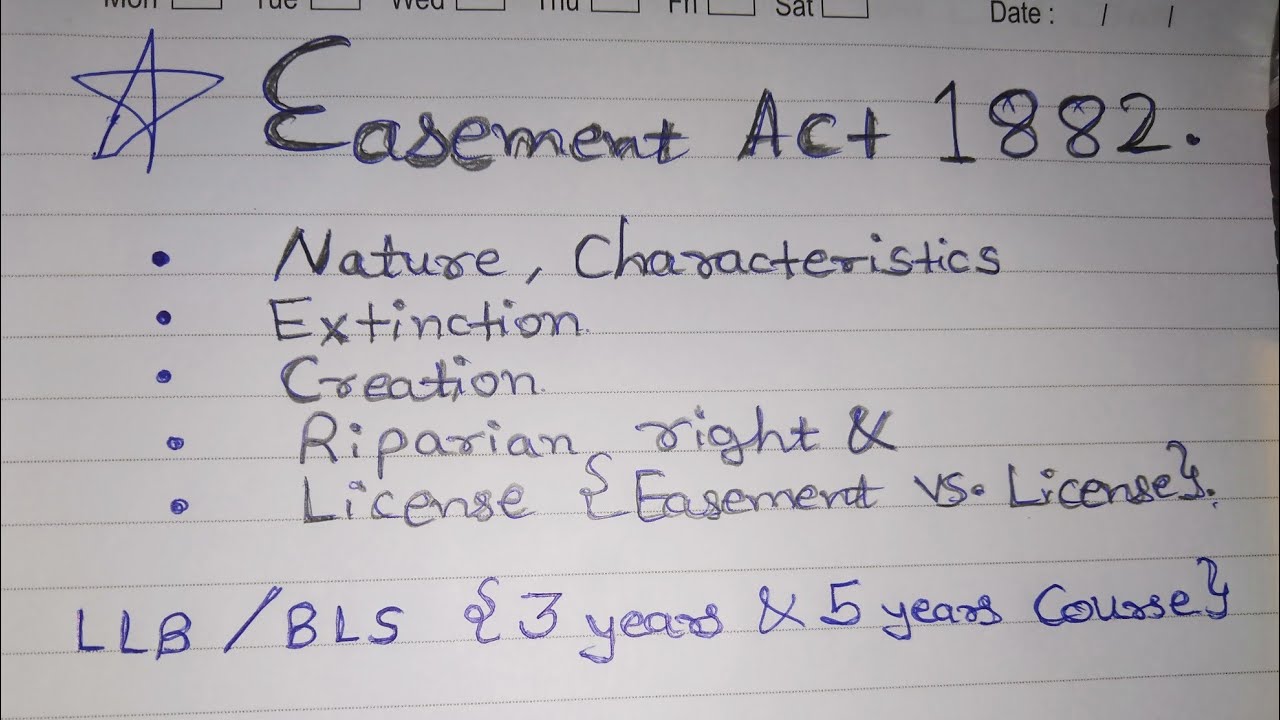 Mon Tue Wed Thu Fri Sat Date : / /
Easement Act 1882.
• Nature, Characteristics
• Extinction.
• Creation.
• Riparian right &
• License {Easement vs. License}.
LLB / BLS {3 years & 5 years Course}